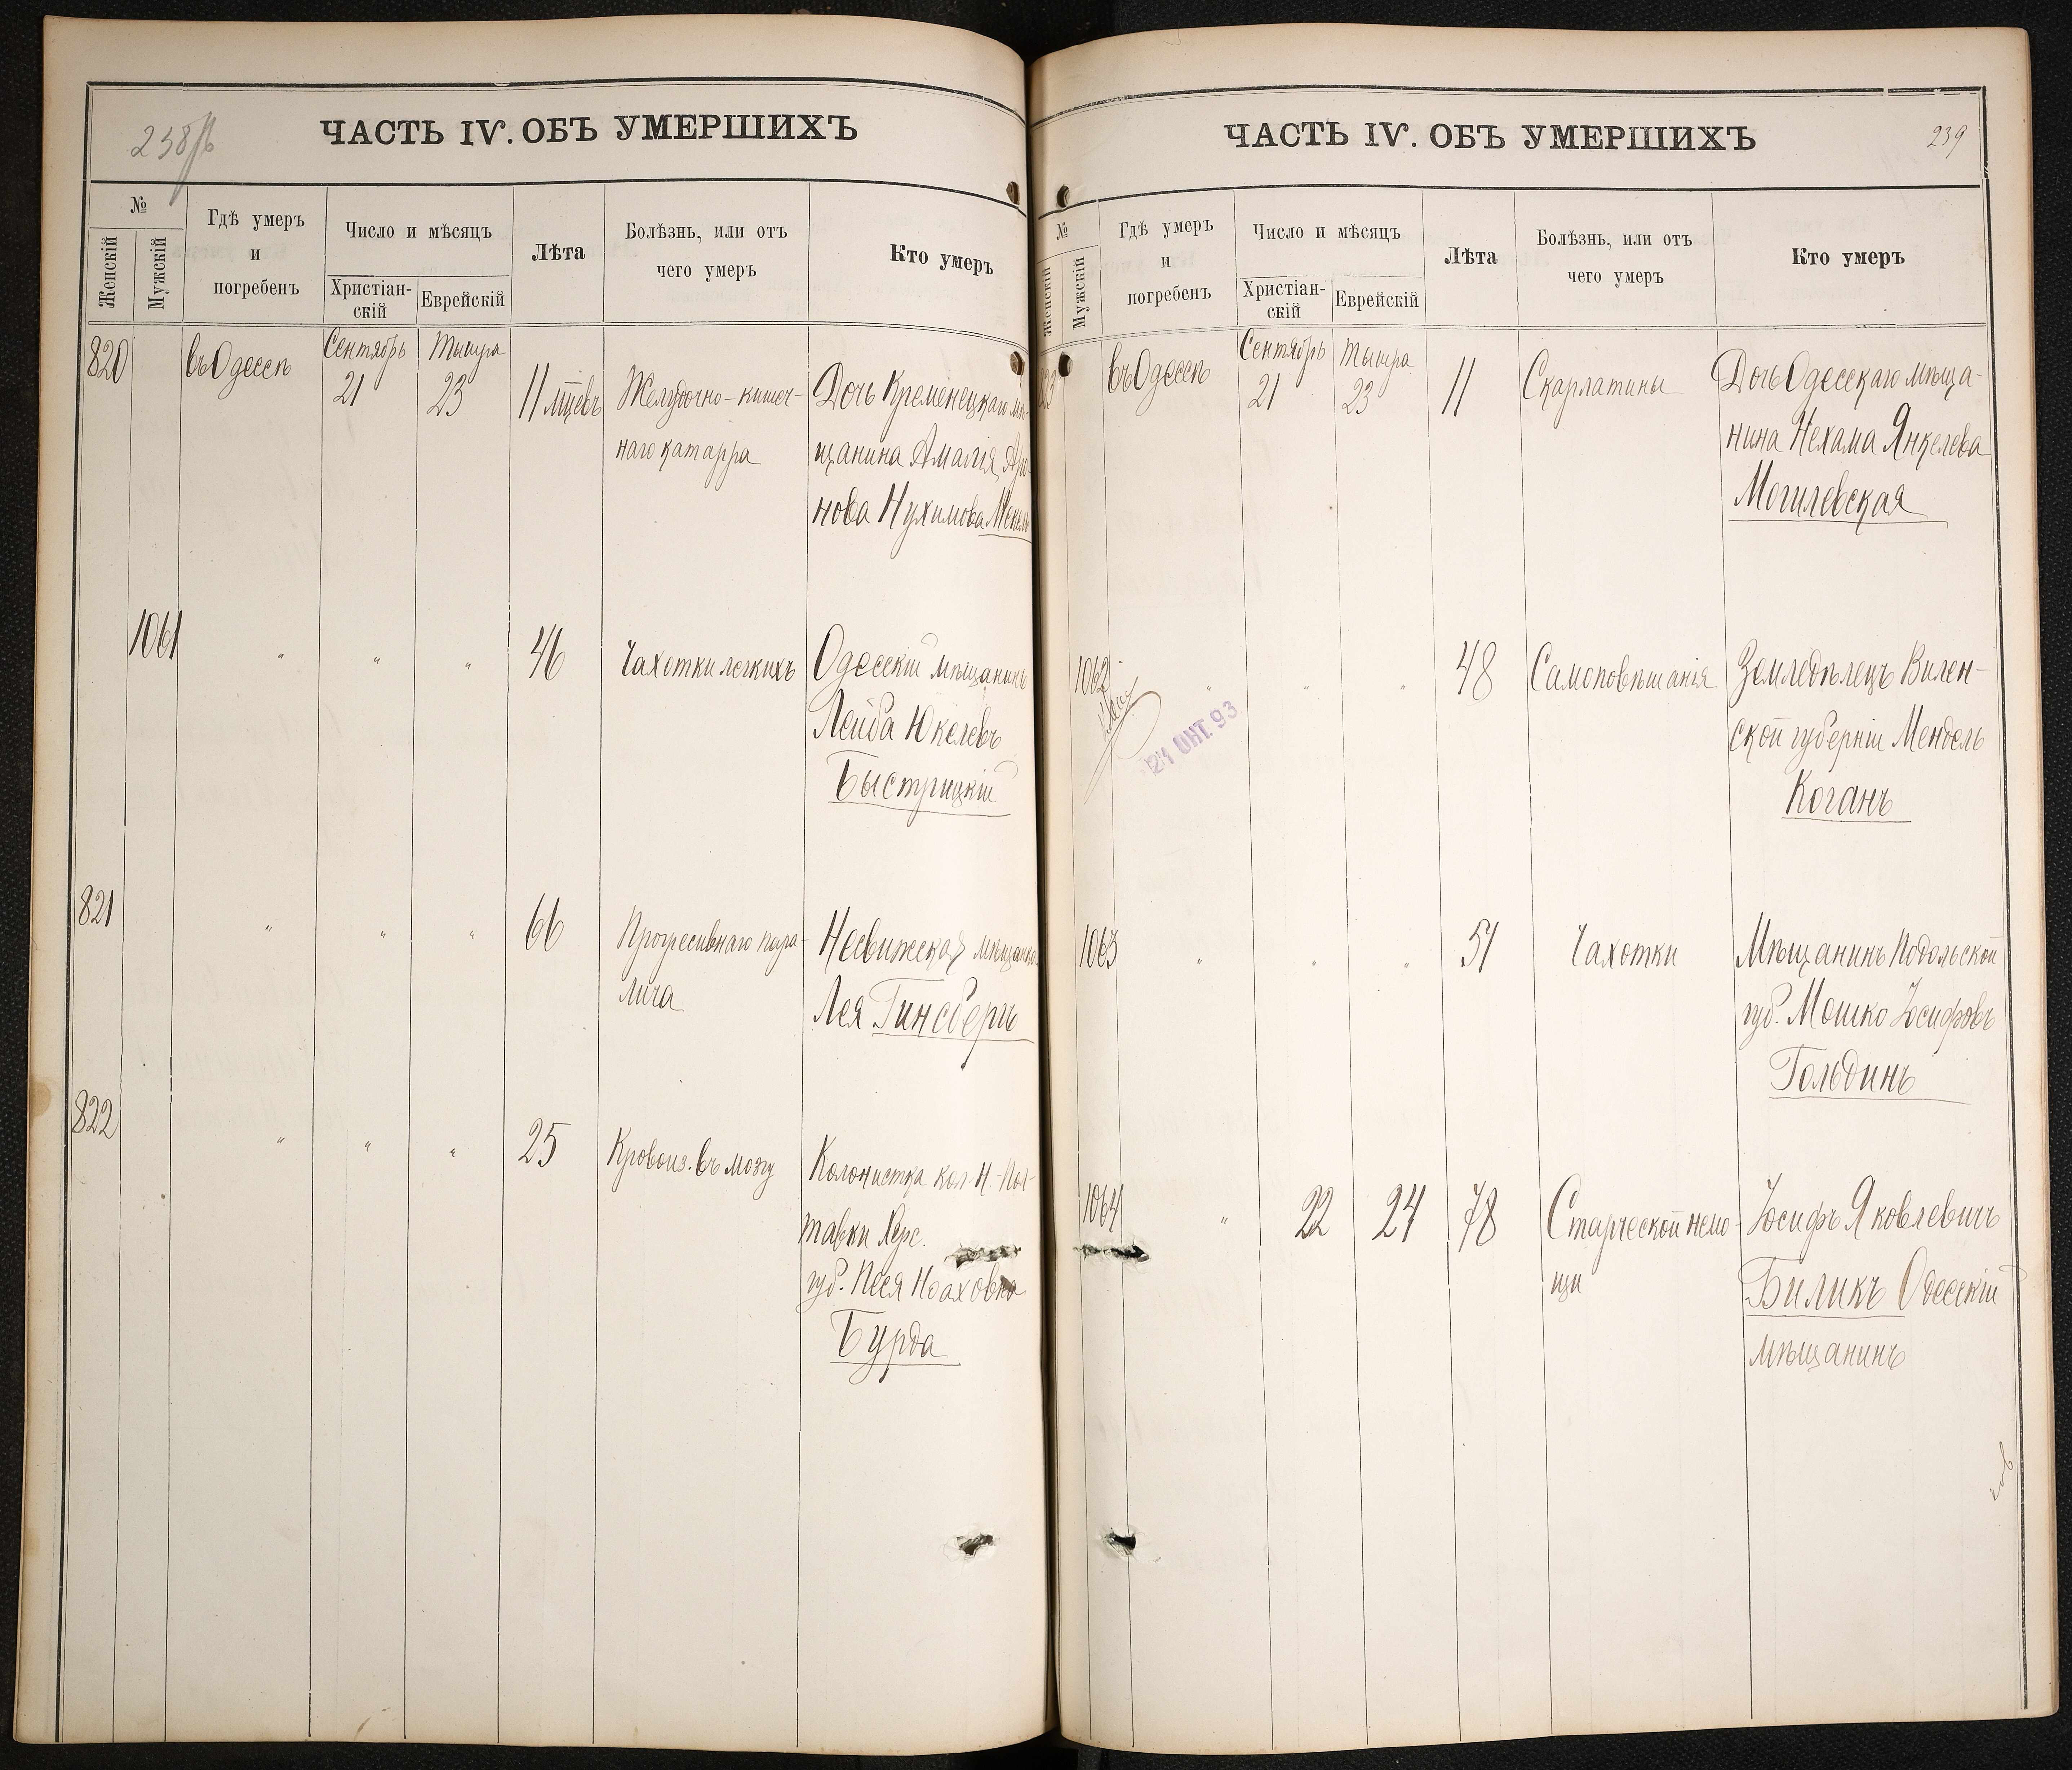 238 об
ЧАСТЬ IV. ОБЪ УМЕРШИХЪ
№
Женскій
Мужскій
Гдѣ умеръ
и
погребенъ
Число и мѣсяцъ
Христіан-
скій
Еврейскій
Лѣта
Болѣзнь, или отъ
чего умеръ
Кто умеръ
820
въ Одессѣ
Сентябрь
21
Тышра
23
11 мцевъ
Желудочно-кишеч-
наго катарра
Дочь Кременецкаго мѣ-
щанина Амалія Аро-
нова Нухимова
1061
"
"
"
46
Чахотки легкихъ
Одесскій мѣщанинъ
Лейба Юкелевъ
Быстрицкій
821
"
"
"
66
Прогресивнаго пара-
лича
Несвижская мѣщанка
Лея Гинсбергъ
822
"
"
"
25
Кровоиз. въ мозгу
Колонистка кол. Н.-Пол-
тавки Херс.
губ. Песя Ноаховна
Бурда
ЧАСТЬ IV. ОБЪ УМЕРШИХЪ
239
№
Женскій
Мужскій
Гдѣ умеръ
и
погребенъ
Число и мѣсяцъ
Христіан-
скій
Еврейскій
Лѣта
Болѣзнь, или отъ
чего умеръ
Кто умеръ
823
въ Одессѣ
Сентябрь
21
Тышра
23
11
Скарлатины
Дочь Одесскаго мѣща-
нина Нехама Янкелева
Могилевская
1062
"
"
"
48
Самоповѣшанія
Земледѣлецъ Вилен-
ской губерніи Мендель
Коганъ
21 ОКТ. 93
1063
"
"
"
51
Чахотки
Мѣщанинъ Подольской
губ. Мошко Іосифовъ
Гольдинъ
1064
"
22
24
78
Старческой немо-
щи
Іосифъ Яковлевичъ
Биликъ Одесскій
мѣщанинъ